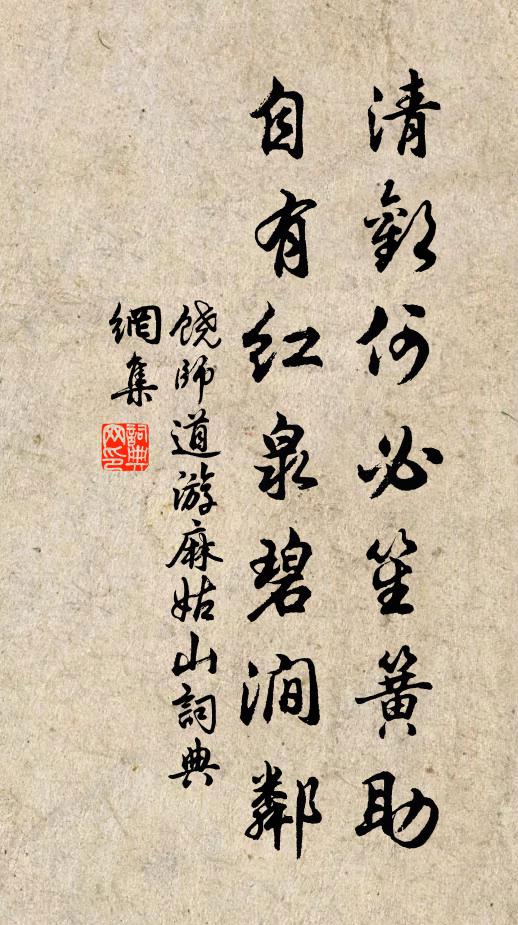 清歡何必笙簧助
自有紅泉碧澗鄰
饒師道游麻姑山詞典
網集
詞典
网印